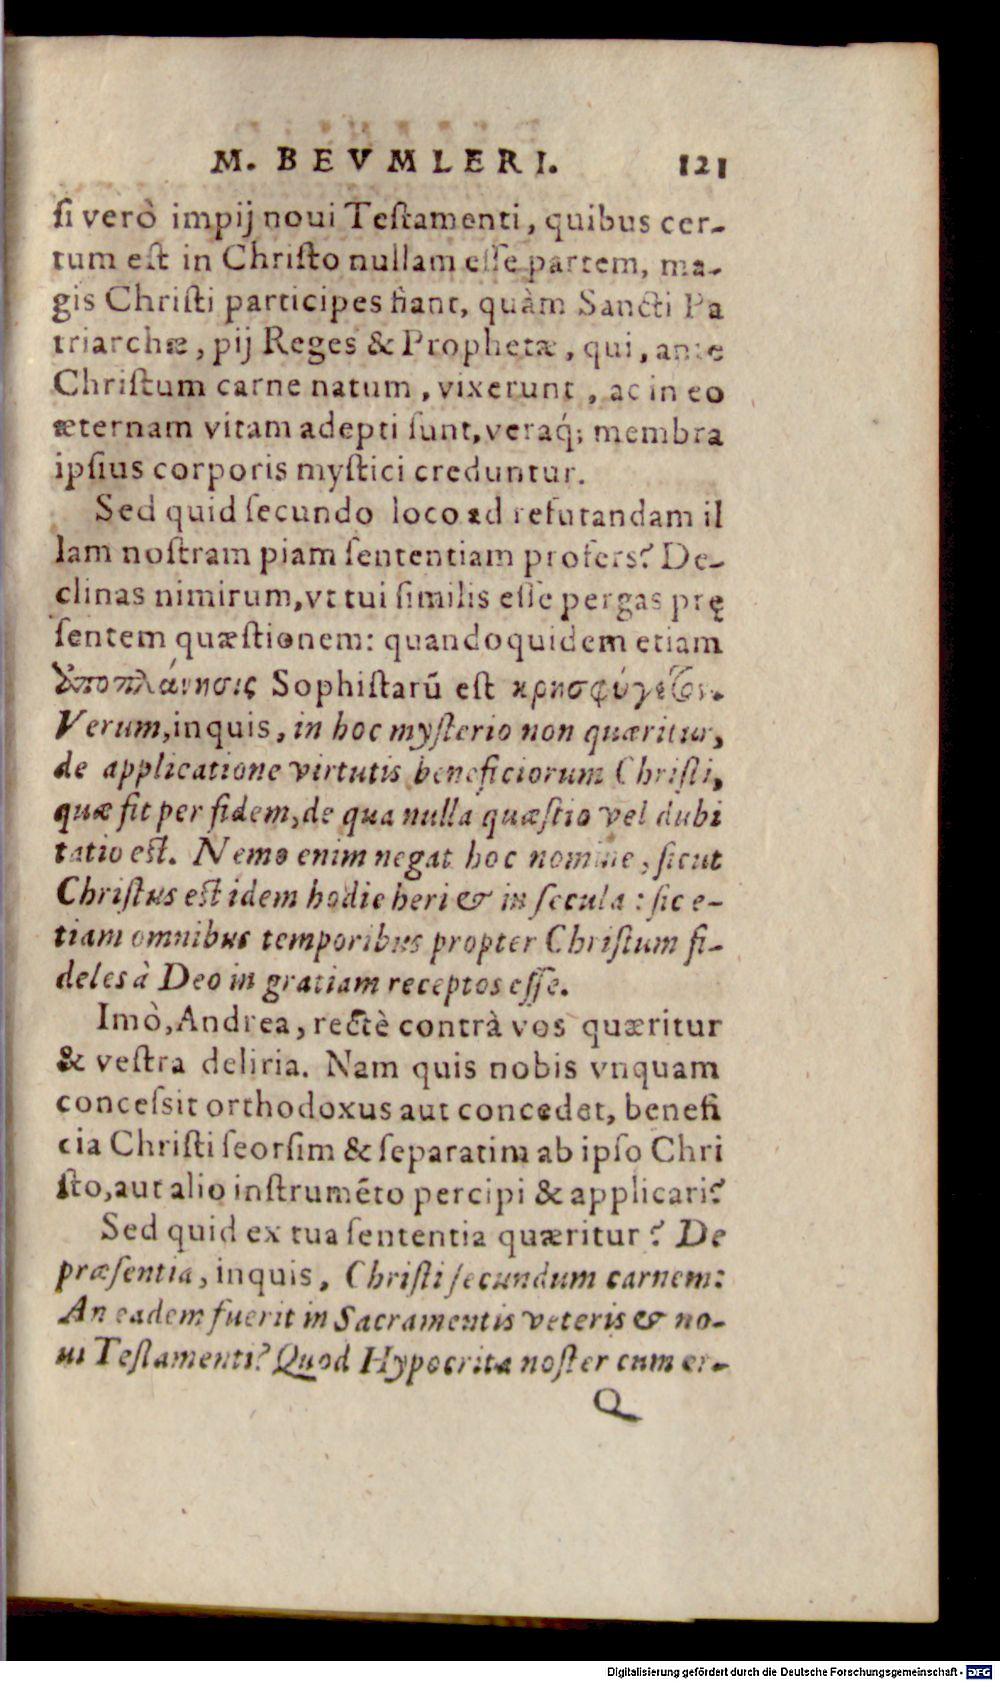 M. BEVMLERI. 121
ſi verò impij noui Teſtamenti, quibus cer-
tum eſt in Chriſto nullam eſſe partem, ma-
gis Chriſti participes fiant, quàm Sancti Pa
triarchæ, pij Reges & Prophetæ, qui, ante
Chriſtum carne natum, vixerunt, ac in eo
æternam vitam adepti ſunt, veraq́; membra
ipſius corporis myſtici creduntur.
Sed quid ſecundo loco ad refutandam il
lam noſtram piam ſententiam profers? De-
clinas nimirum, vt tui ſimilis eſſe pergas prę
ſentem quæſtionem: quandoquidem etiam
ὑποπλάνησις Sophiſtarū eſt κρησφύγετον.
Verum, inquis, in hoc myſterio non quæritur,
de applicatione virtutis beneficiorum Chriſti,
quæ fit per fidem, de qua nulla quæſtio vel dubi
tatio eſt. Nemo enim negat hoc nomine, ſicut
Chriſtus eſt idem hodie heri & in ſecula: ſic e-
tiam omnibus temporibus propter Chriſtum fi-
deles à Deo in gratiam receptos eſſe.
Imò, Andrea, rectè contrà vos quæritur
& veſtra deliria. Nam quis nobis vnquam
conceſsit orthodoxus aut concedet, benefi
cia Chriſti ſeorſim & ſeparatim ab ipſo Chri
ſto, aut alio inſtrumēto percipi & applicari?
Sed quid ex tua ſententia quæritur? De
præſentia, inquis, Chriſti ſecundum carnem:
An eadem fuerit in Sacramentis veteris & no-
ui Teſtamenti? Quod Hypocrita noſter cum er-
Q
Digitalisierung gefördert durch die Deutsche Forschungsgemeinschaft - DFG